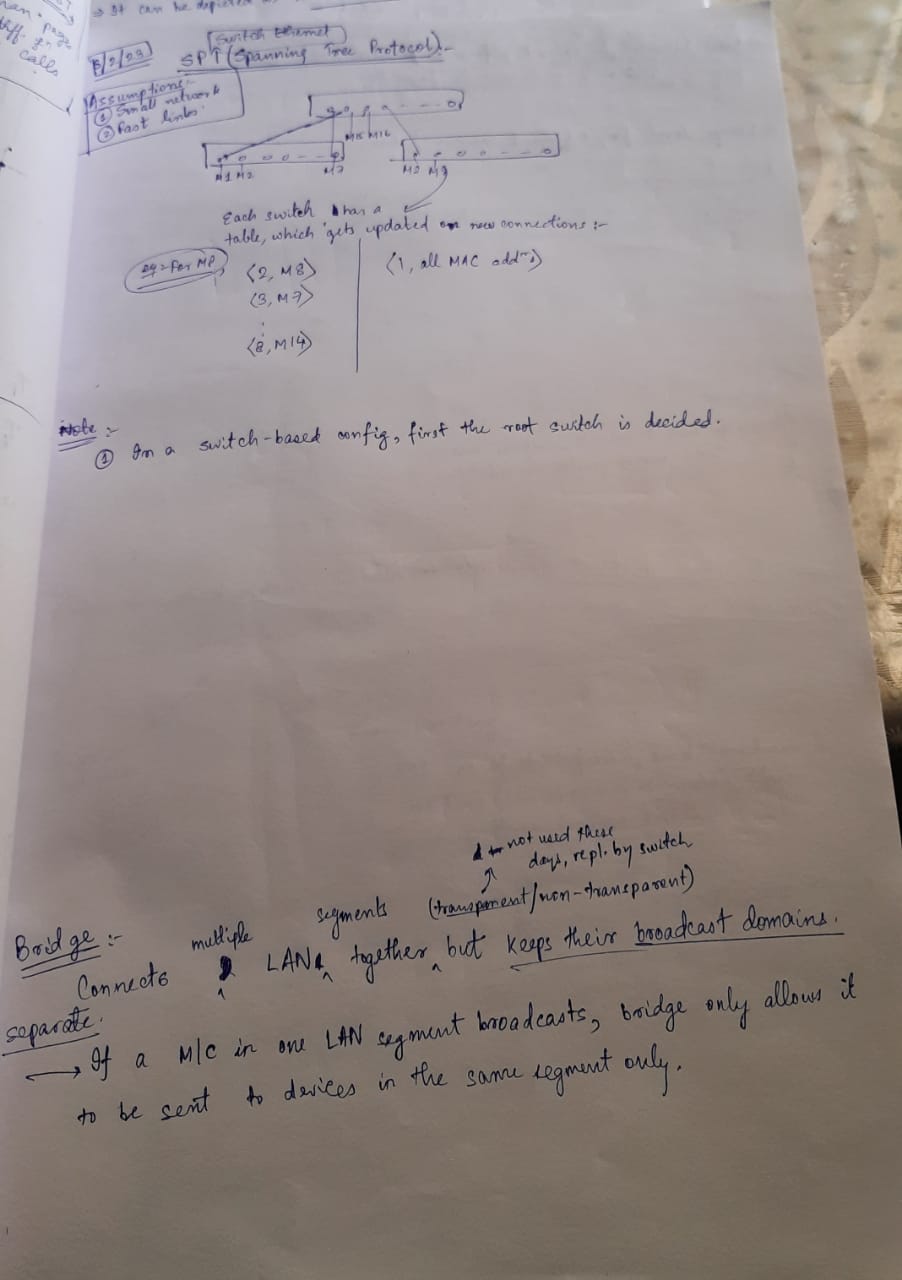 → It can be depicted
pages
diff.
calls
[Switch Ethernet]
8/2/23
SPT (Spanning Tree Protocol):-
Assumptions:-
① Small network
② Fast links
M15 M16
M1 M2 M7 M8 M9
Each switch has a
table, which gets updated on new connections :-
eg:- For M8
<2, M8> <1, all MAC addrs>
<3, M7>
:
<8, M14>
Note :-
① In a switch-based config, first the root switch is decided.
not used these
days, repl. by switch
Bridge :- multiple segments (transparent/non-transparent)
Connects LANs together, but keeps their broadcast domains
separate.
→ If a M/C in one LAN segment broadcasts, bridge only allows it
to be sent to devices in the same segment only.